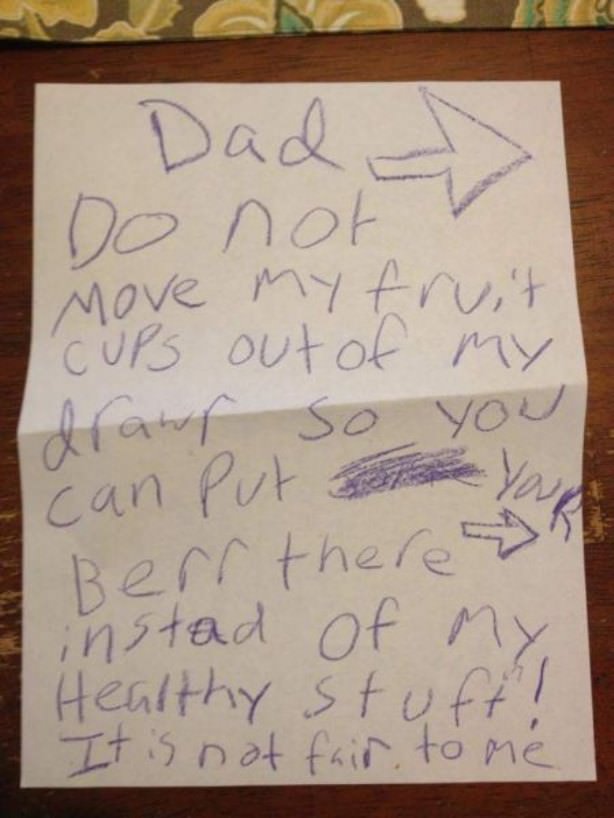 Dad
Do not
Move my fruit
cups out of my
drawr so you
can put your
Berr there
instead of my
Healthy stuff!
It is not fair. to me